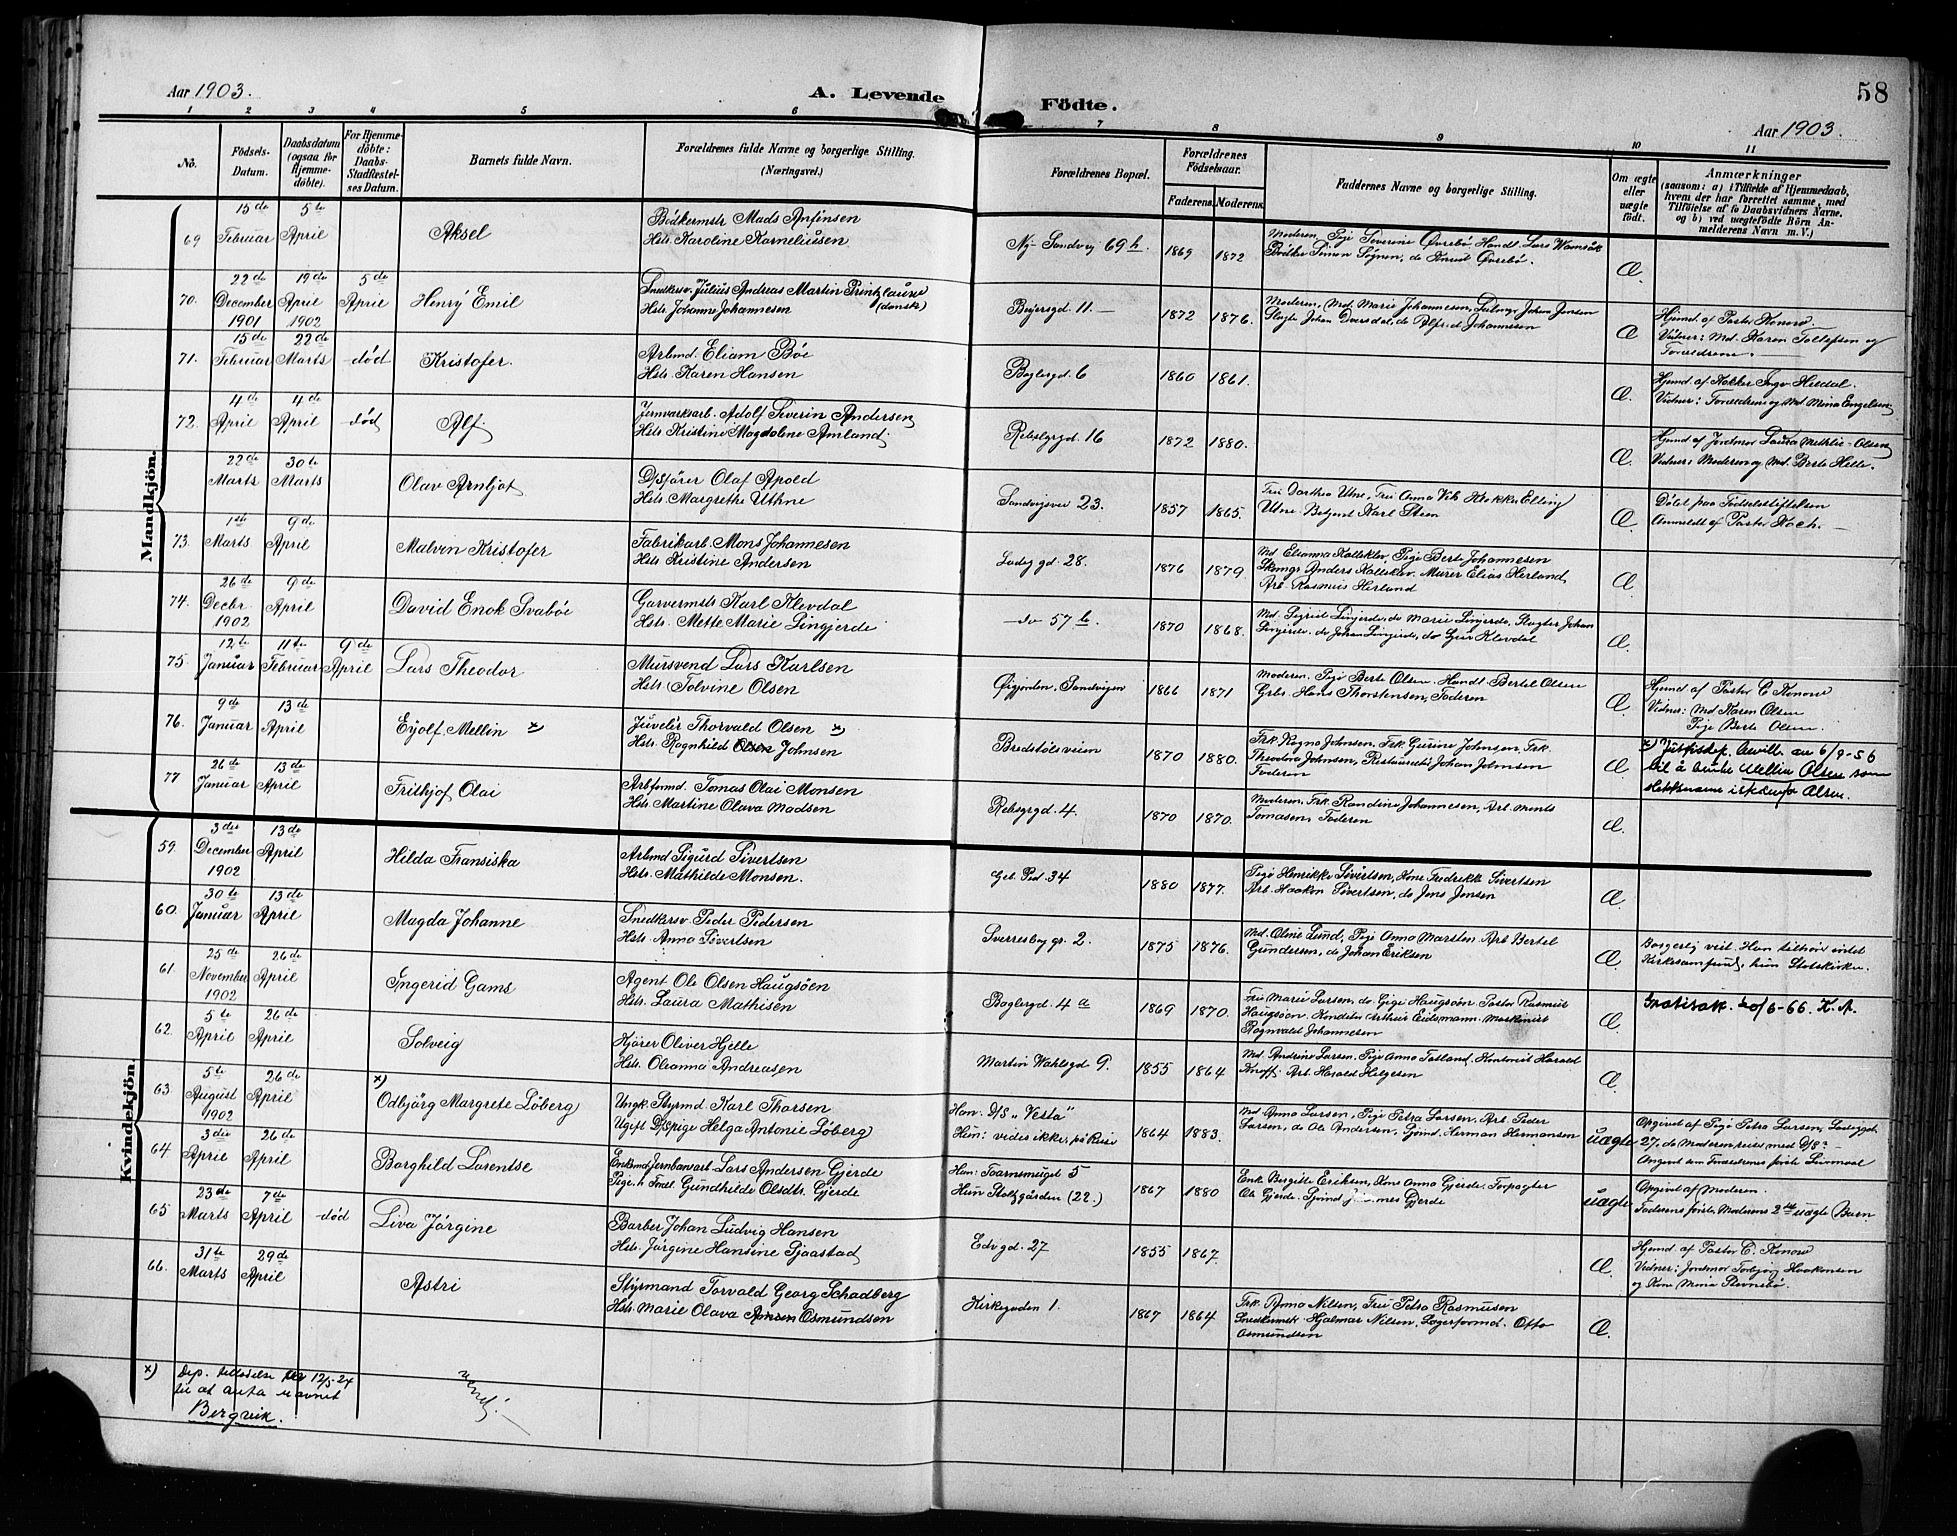 58
Aar 1903.
A. Levende
Födte.
Aar 1903.
1 2 3 4 5 6 7 8 9 10 11
No.
Födsels-Datum.
Daabsdatum (ogsaa for Hjemmedöbte).
For Hjemmedöbte: Daabs-Stadfæstelses Datum.
Barnets fulde Navn.
Forældrenes fulde Navne og borgerlige Stilling.
(Næringsvei.)
Forældrenes Bopæl.
Forældrenes Födselsaar.
Faderens. Moderens.
Faddernes Navne og borgerlige Stilling.
Om ægte eller uægte födt.
Anmærkninger
(saasom: a) i Tilfælde af Hjemmedaab, hvem der har forrettet samme, med Tilföielse af to Daabsvidners Navne. og b) ved uægtefödte Börn Anmelderens Navn m. V.)
Mandkjön.
69 15de Februar 5te April Aksel
Bödkermstr Mads Anfinsen
Hstr. Karoline Korneliussen
Ny Sandvig 69 h 1869 1872
Moderen, Pige Severine Øvrebö, Handl. Lars
Bödker Simon Sognen, do Knud Øvrebö.
Æ
70. 22de December 1901 19de April 1902 5de April Henry Emil
Snedkersv. Julius Andreas Martin Printzlause (dansk)
Hstr. Johanne Johannesen
Beiersgd. 11. 1872 1876.
Moderen, Md. Marie Johannesen, Johan Jensen
Slagter Johan Dversdal, do Alfred Johannesen
Æ
Hjemd. af Pastor Konow
Vidner: Md. Karen Tollefsen og
Forældrene.
71. 15de Februar 22de Marts død Kristofer.
Arbmd. Eliam Böe
Hstr. Karen Hansen
Baglergd. 6 1860 1861.
Æ.
Hjemd. af Inga Hildal.
Vidner: Forældrene og Md. Mina Engelsen
72. 4de April 4de April død Alf
Jernvarksarb. Adolf Severin Andersen
Hstr. Kristine Magdalene Amland.
Rebslgrgd. 16 1872 1880.
Æ.
Hjemd. af Jordmor Laura Methlie-Olsen
Vidner: Moderen og Md. Berte Helle.
22de Marts 30te Marts Olav Arnljot
D/sförer Olaf Apold
Hstr. Margrethe Uthne
Sandvigsvei 23. 1857 1865.
Fru Dorthea Utne, Fru Anna Vik Elling
Utne Betjent Karl Steen
Æ
Döbt paa Födselsstiftelsen
Anmeldt af Pastor Koch.
73. 1ste Marts 9de April Malvin Kristofer
Fabrikarb. Mons Johannesen
Hstr. Kristine Andersen
Ladegd. 28. 1876 1879
Md Elianna Kalleklev, Pige Berte Johannesen
Anders Kalleklev. Murer Elias Herland,
Arb. Rasmus Herland
Æ
74. 26de Decbr. 1902 9de April David Enok Svaböe
Garvermstr. Karl Klevdal
Hstr. Mette Marie Lingjerde
do 57 b. 1870 1868.
Md. Sigrid Lingjerde, do Marie Lingjerde, Slagter Johan
Lingjerde, do Johan Lingjerde, do Klevdal
Æ.
75. 12te Januar 11te Februar 9de April Lars Theodor
Mursvend Lars Karlsen
Hstr. Tolvine Olsen
Øigjorden, Sandvigen 1866 1871
Moderen. Pige Berte Olsen. Handl. Bertel Olsen
Grbr. Hans Thorstensen, Faderen.
Æ
Hjemd. af Pastor C Konow
Vidner: Md Karen Olsen
Pige Berte Olsen.
76. 9de Januar 13de April Eyolf Mellin x)
Juvelér Thorvald Olsen x)
Hstr. Ragnhild Olsen Johnsen
Bredstölsveien 1870 1880.
Frk. Ragna Johnsen, Frk. Gurine Johnsen, Frk.
Theodora Johnsen, Restauratör Johan Johnsen
Faderen
Æ
x) Justisdep. bevill. av 6/9-56
til å bruke Mellin Olsen som
slektsnavn istedenfor Olsen.
77 26de Januar 13de April Frithjof Olai
Arbfmd. Tomas Olai Monsen
Hstr. Martine Olava Madsen
Rebsgrgd. 4. 1870 1870.
Moderen, Frk. Randine Johannesen, Arb. Monts
Tomasen, Faderen
Æ.
Kvindekjön.
59. 3die December 1902 13de April Hilda Fransiska
Arbmd Sigurd Sivertsen
Hstr. Mathilde Monsen.
Geb. Ped. 34 1880 1877.
Pige Henrikke Sivertsen, Kone Fredrikke Sivertsen
Arb. Haakon Sivertsen, do Jens Jensen
Æ
60. 30te Januar 13de April Magda Johanne
Snedkersv. Peder Pedersen
Hstr. Anna Sivertsen
Sverresborg gr. 2. 1875 1876.
Md. Oline Lund, Pige Anna Marsten Arb. Bertel
Gundersen, do Johan Eriksen
Æ
Borgerlig viet. Han tilhörer intet
Kirkesamfund, hun Statskirken.
61. 25de November 1902 26de April Ingerid Gams
Agent Ole Olsen Haugsöen
Hstr. Laura Mathisen
Baglergd. 4 a 1869 1870.
Fru Marie Larsen, do Gige Haugsöen Pastor Rasmus
Haugsöen, Konditor Arthur Eidsmann Maskinist
Ragnvald Johannesen
Æ
Gratisatt. 20/6-66. K. A.
62. 5te April 26de April Solveig
Kjörer Oliver Hjelle
Hstr. Oleanna Andreasen
Martin Wahlsgd 9. 1855 1864
Md. Andrine Larsen. Pige Anna Tosland, Kontorist Harald
Knoff. Arb. Harald Helgesen
Æ
63. 5te August 1902 26de April x) Odbjörg Margrete Löberg
Ungk. Styrmd. Karl Thorsen
Ugift D/Spige Helga Antonie Löberg
Han. D/S „Vesta"
Hun: vides ikke, på Reise 1864 1883.
Md. Anna Larsen, Pige Petra Larsen, Arb. Peder
Larsen, do Ole Andersen, Herman Hermansen
uægte
Opgivet af Pige Petra Larsen, Ladegd.
27, da Moderen reist med D/S?
Angivet som Forældrenes förste Leiermaal
64 3die April 26de April Borghild Lorentse
Enkemd Jernbanearb. Lars Andersen Gjerde
Pige Gundhilde Olsdtr. Gjerde
Han: Taarnsmuget 5
Hun Stoltzgården (22.) 1867 1880
Enk. Birgitte Eriksen, Kone Anna Gjerde Forpagter
Ole Gjerde. Gjerde
uægte
Opgivet af Moderen.
Faderens förste, Moderens 2det uægte Barn
65 23de Marts 7de April död Liva Jörgine
Barber Johan Ludvig Hansen
Hstr. Jörgine Hansine Sjaastad
Edvgd. 27 1855 1867.
Æ
Hjemd af Pastor C. Konow
Vidner: Jordmor Torbjörg Haakonsen
og Kone Mina
66. 31te Marts 29de April Astri
Styrmand Torvald Georg Schadberg
Hstr. Marie Olava Osmundsen
Kirkegaden 1. 1867 1864
Frk. Anna Nilsen, Fru Petra Rasmusen
Snedkermstr Hjalmar Nilsen, Lagerformd. Otto
Osmundsen
Æ.
x) Dep. tilladelse 12/5-24
til at anta navnet
Bergvik.
vend!